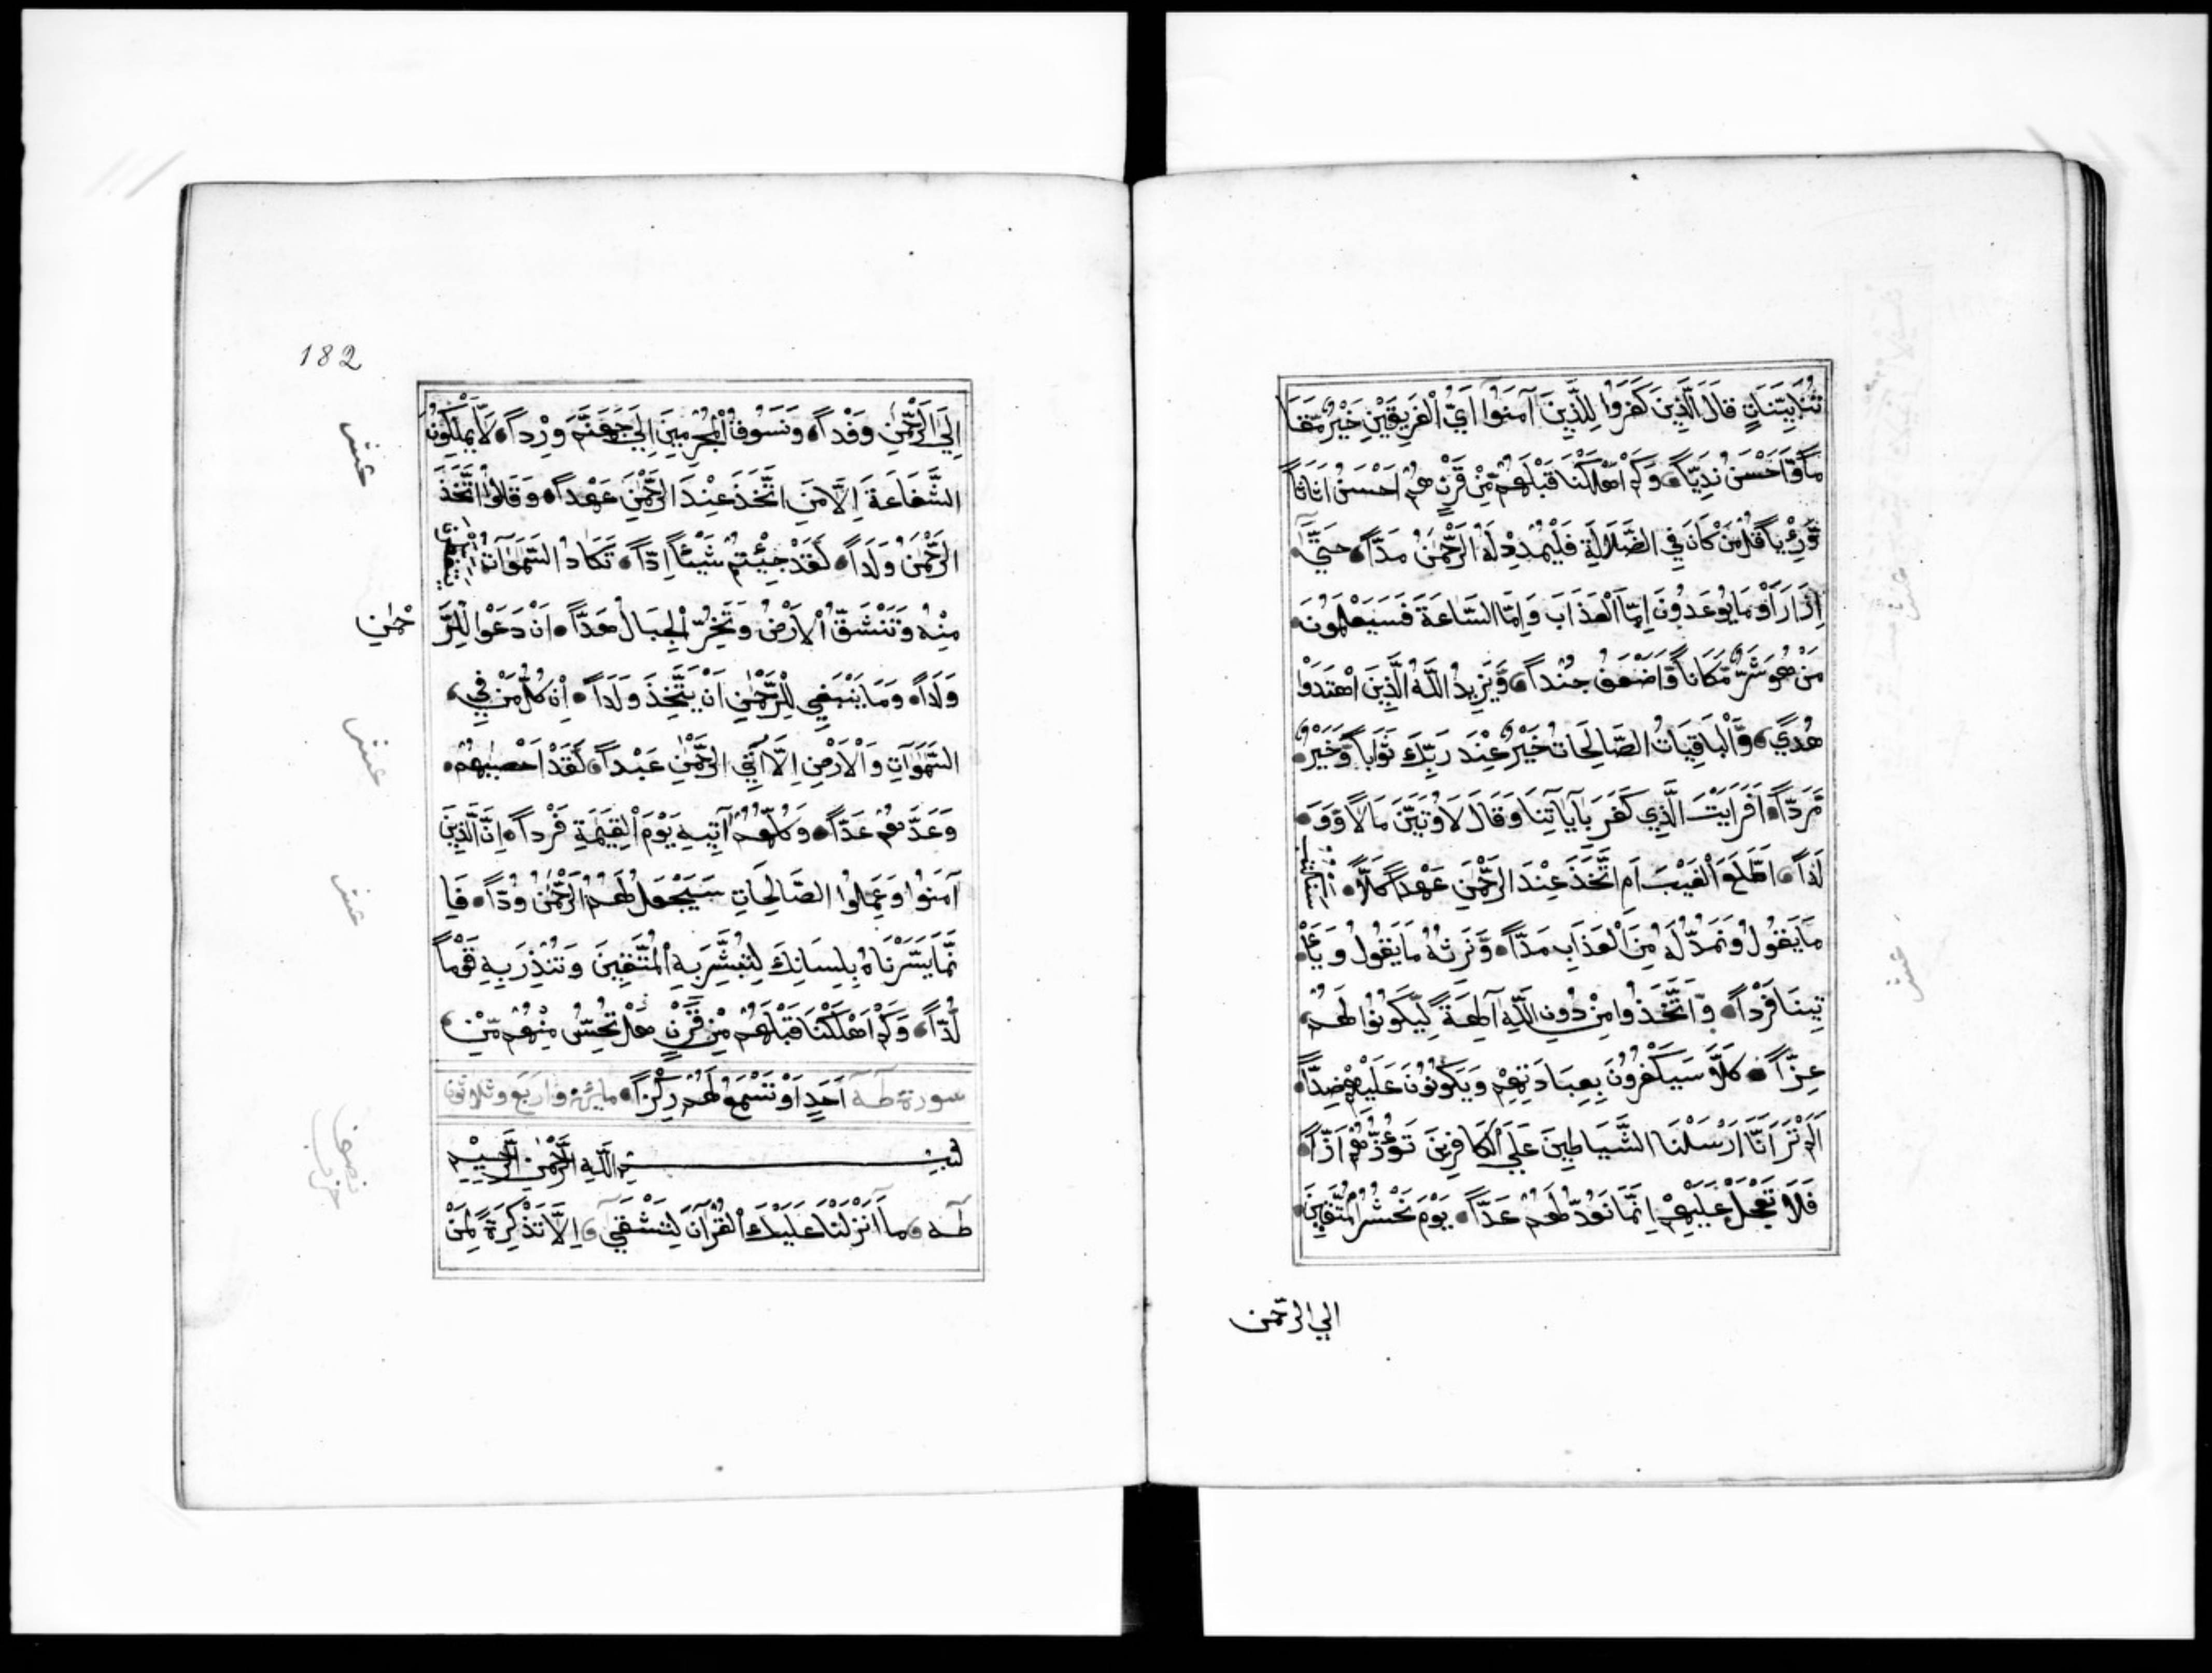 تُنَا بَيِّنَاتٍ قَالَ الَّذِينَ كَفَرُوا لِلَّذِينَ آمَنُوا اَيُّ الْفَرِيقَيْنِ خَيْرٌ مَّقَا
مًا وَّاَحْسَنُ نَدِيًّا وَكَمْ اَهْلَكْنَا قَبْلَهُمْ مِّنْ قَرْنٍ هُمْ اَحْسَنُ اَثَاثًا
وَّرِءْيًا قُلْ مَنْ كَانَ فِي الضَّلَالَةِ فَلْيَمْدُدْ لَهُ الرَّحْمٰنُ مَدًّا حَتَّى
اِذَا رَاَوْ مَا يُوعَدُونَ اِمَّا الْعَذَابَ وَاِمَّا السَّاعَةَ فَسَيَعْلَمُونَ
مَنْ هُوَ شَرٌّ مَّكَانًا وَّاَضْعَفُ جُنْدًا وَّيَزِيدُ اللَّهُ الَّذِينَ اهْتَدَوْا
هُدًي وَّالْبَاقِيَاتُ الصَّالِحَاتُ خَيْرٌ عِنْدَ رَبِّكَ ثَوَابًا وَّخَيْرٌ
مَّرَدًّا اَفَرَاَيْتَ الَّذِي كَفَرَ بِآيَاتِنَا وَقَالَ لَاُوتَيَنَّ مَالًا وَّوَ
لَدًا اَطَّلَعَ الْغَيْبَ اَمِ اتَّخَذَ عِنْدَ الرَّحْمٰنِ عَهْدًا كَلَّا سَنَكْتُبُ
مَا يَقُولُ وَنَمُدُّ لَهُ مِنَ الْعَذَابِ مَدًّا وَّنَرِثُهُ مَا يَقُولُ وَيَاْ
تِينَا فَرْدًا وَّاتَّخَذُوا مِنْ دُونِ اللَّهِ آلِهَةً لِّيَكُونُوا لَهُمْ
عِزًّا كَلَّا سَيَكْفُرُونَ بِعِبَادَتِهِمْ وَيَكُونُونَ عَلَيْهِمْ ضِدًّا
اَلَمْ تَرَ اَنَّا اَرْسَلْنَا الشَّيَاطِينَ عَلَي الْكَافِرِينَ تَؤُزُّهُمْ اَزًّا
فَلَا تَعْجَلْ عَلَيْهِمْ اِنَّمَا نَعُدُّ لَهُمْ عَدًّا يَوْمَ نَحْشُرُ الْمُتَّقِينَ
الي الرحمن
عشر
182
اِلَي الرَّحْمٰنِ وَفْدًا وَنَسُوقُ الْمُجْرِمِينَ اِلَي جَهَنَّمَ وِرْدًا لَّا يَمْلِكُونَ
عشر
الشَّفَاعَةَ اِلَّا مَنِ اتَّخَذَ عِنْدَ الرَّحْمٰنِ عَهْدًا وَقَالُوا اتَّخَذَ
الرَّحْمٰنُ وَلَدًا لَّقَدْ جِئْتُمْ شَيْئًا اِدًّا تَكَادُ السَّمٰوَاتُ
مِنْهُ وَتَنْشَقُّ الْاَرْضُ وَتَخِرُّ الْجِبَالُ هَدًّا اَنْ دَعَوْا لِلرَّ
حْمٰنِ
وَلَدًا وَمَا يَنْبَغِي لِلرَّحْمٰنِ اَنْ يَتَّخِذَ وَلَدًا اِنْ كُلُّ مَنْ فِي
عشر
السَّمٰوَاتِ وَالْاَرْضِ اِلَّا آتِي الرَّحْمٰنِ عَبْدًا لَقَدْ اَحْصٰيهُمْ
وَعَدَّهُمْ عَدًّا وَكُلُّهُمْ آتِيهِ يَوْمَ الْقِيٰمَةِ فَرْدًا اِنَّ الَّذِينَ
آمَنُوا وَعَمِلُوا الصَّالِحَاتِ سَيَجْعَلُ لَهُمُ الرَّحْمٰنُ وُدًّا فَاِ
عشر
نَّمَا يَسَّرْنَاهُ بِلِسَانِكَ لِتُبَشِّرَ بِهِ الْمُتَّقِينَ وَتُنْذِرَ بِهِ قَوْمًا
لُّدًّا وَكَمْ اَهْلَكْنَا قَبْلَهُمْ مِّنْ قَرْنٍ هَلْ تُحِسُّ مِنْهُمْ مِّنْ
سورة طه اَحَدٍ اَوْ تَسْمَعُ لَهُمْ رِكْزًا مايئة واربع وثلاثون
نصف حزب
بِسْمِ اللَّهِ الرَّحْمٰنِ الرَّحِيمِ
طٰه مَا اَنْزَلْنَا عَلَيْكَ الْقُرْآنَ لِتَشْقَي اِلَّا تَذْكِرَةً لِّمَنْ